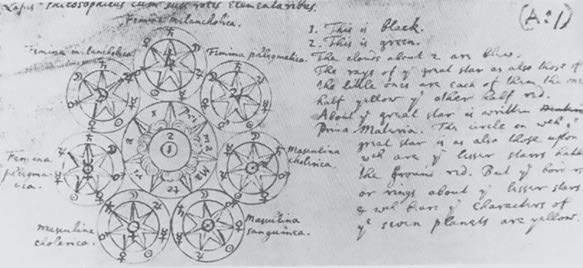 Lapis Philosophicus cum suis rotis elementaribus.
Femina melancholica.
Femina melancholica.
Femina phlegmatica.
Femina phlegmatica.
Masculina cholerica.
masculina cholerica.
Masculina sanguinea.
1
2
(A:1)
1. This is black.
2. This is green.
The clouds about 2 are blew.
The rays of yᵉ great star as also those of
the little ones are each of them the one
half yellow yᵉ other half red.
About yᵉ great star is written
Prima Materia. The circle on wch yᵉ
great star is as also those upon
wch are yᵉ lesser stars hath
the ground red. But yᵉ
or rings about yᵉ lesser stars
& wch bears yᵉ characters of
yᵉ seven planets are yellow.